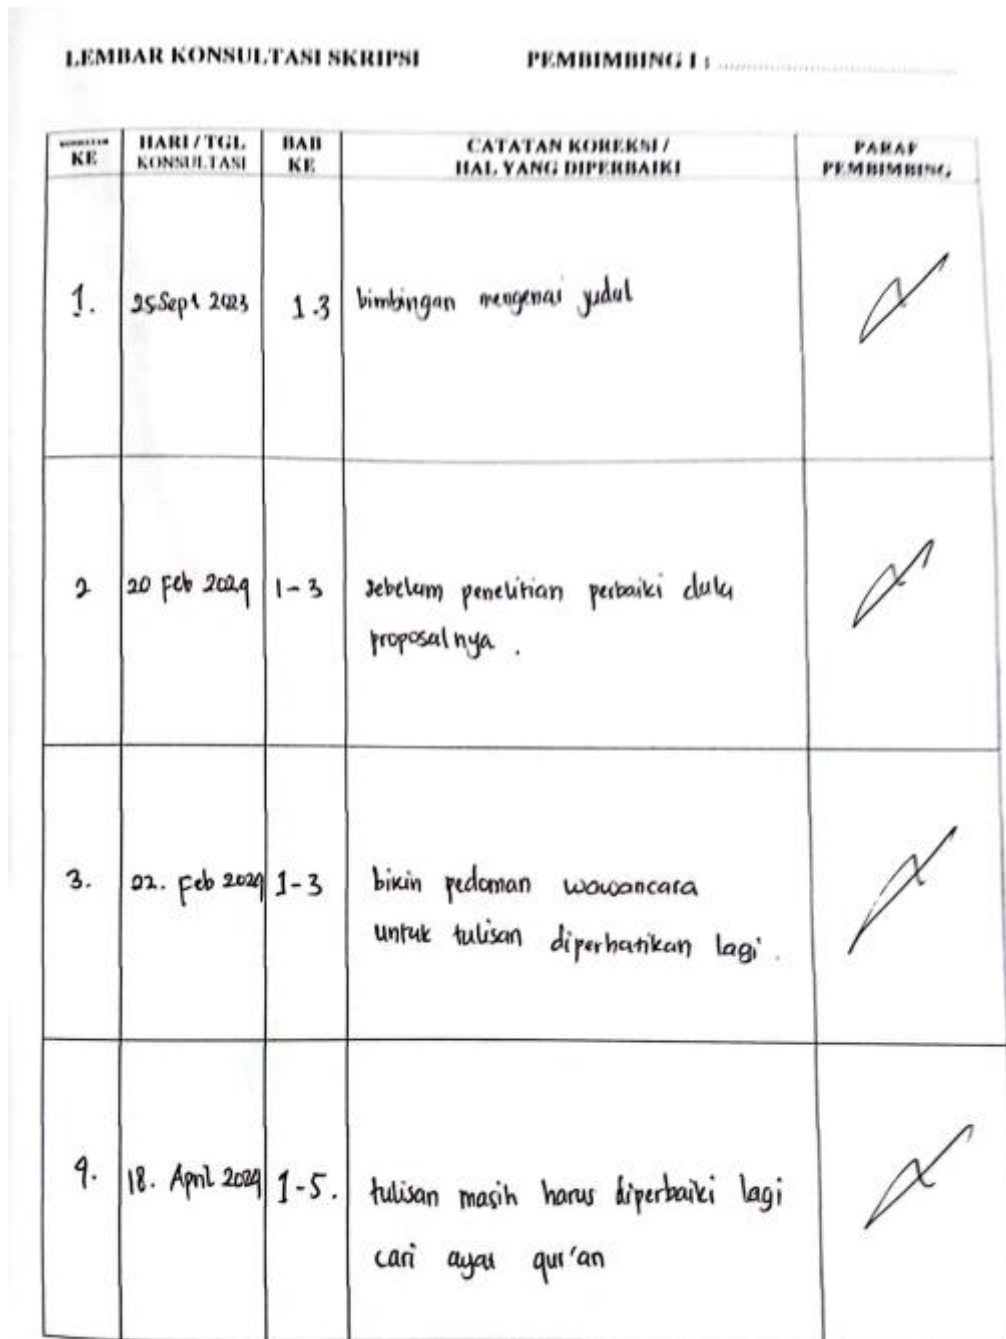 LEMBAR KONSULTASI SKRIPSI PEMBIMBING I : ....................
KE HARI / TGL KONSULTASI BAB KE CATATAN KOREKSI / HAL YANG DIPERBAIKI PARAF PEMBIMBING
1. 25 Sept 2023 1-3 bimbingan mengenai judul
2 20 Feb 2024 1-3 sebelum penelitian perbaiki dulu
proposalnya .
3. 22. Feb 2024 1-3 bikin pedoman wawancara
untuk tulisan diperhatikan lagi .
4. 18. April 2024 1-5. tulisan masih harus diperbaiki lagi
cari ayat qur'an